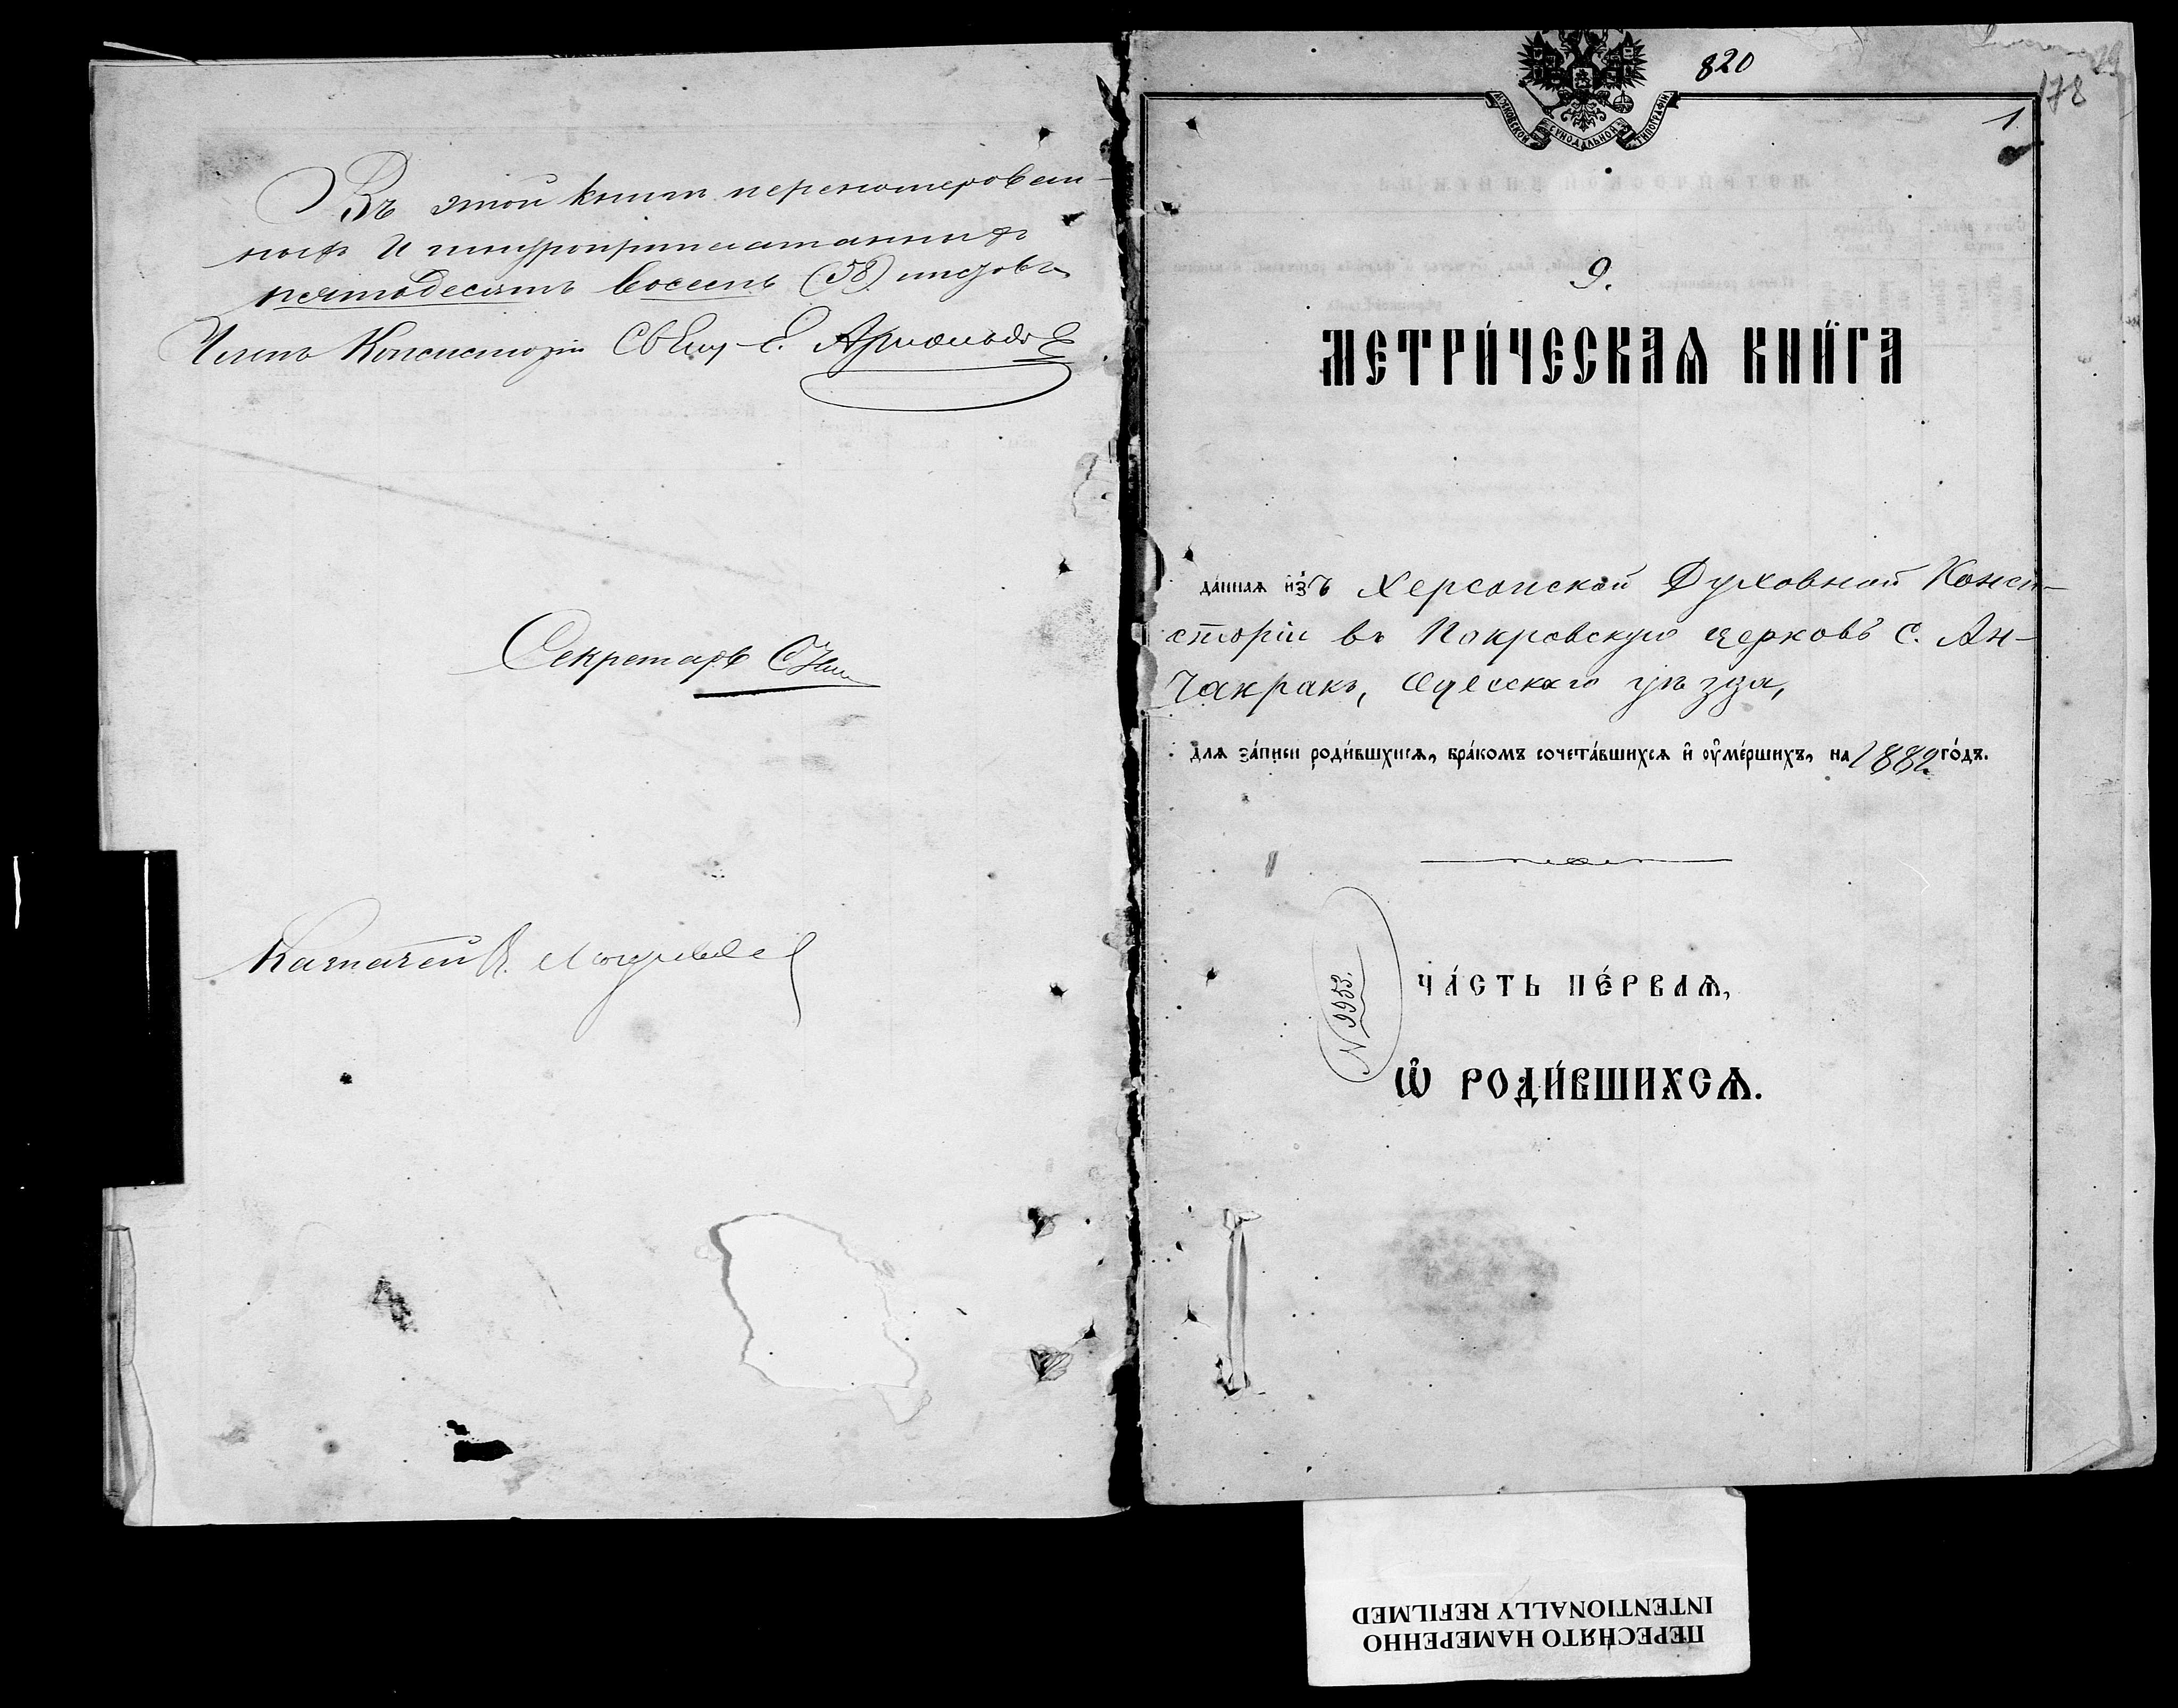 Въ этой книгѣ перенумерован-
ныхъ и шнуроприпечатанныхъ
пятьдесятъ восемь (58) листовъ
Членъ Консисторіи Свящ. Е. Арнольдо
Секретарь
Казначей
820
178
1
МОСКОВСКОЙ СѴНОДАЛЬНОЙ ТИПОГРАФІИ
9.
МЕТРИ́ЧЕСКАѦ КНИ́ГА
да́ннаѧ и҆зъ Херсонской Духовной Конси-
сторіи въ Покровскую церковь с. Ан-
Чакракъ, Одесскаго уѣзда,
длѧ за́писи роди́вшихсѧ, бра́комъ сочета́вшихсѧ и҆ ᲂу҆ме́ршихъ, на 1882 го́дъ.
N 9953.
ЧА́СТЬ ПЕ́РВАѦ,
Ѽ РОДИ́ВШИХСѦ.
ПЕРЕСНЯТО НАМЕРЕННО
INTENTIONALLY REFILMED